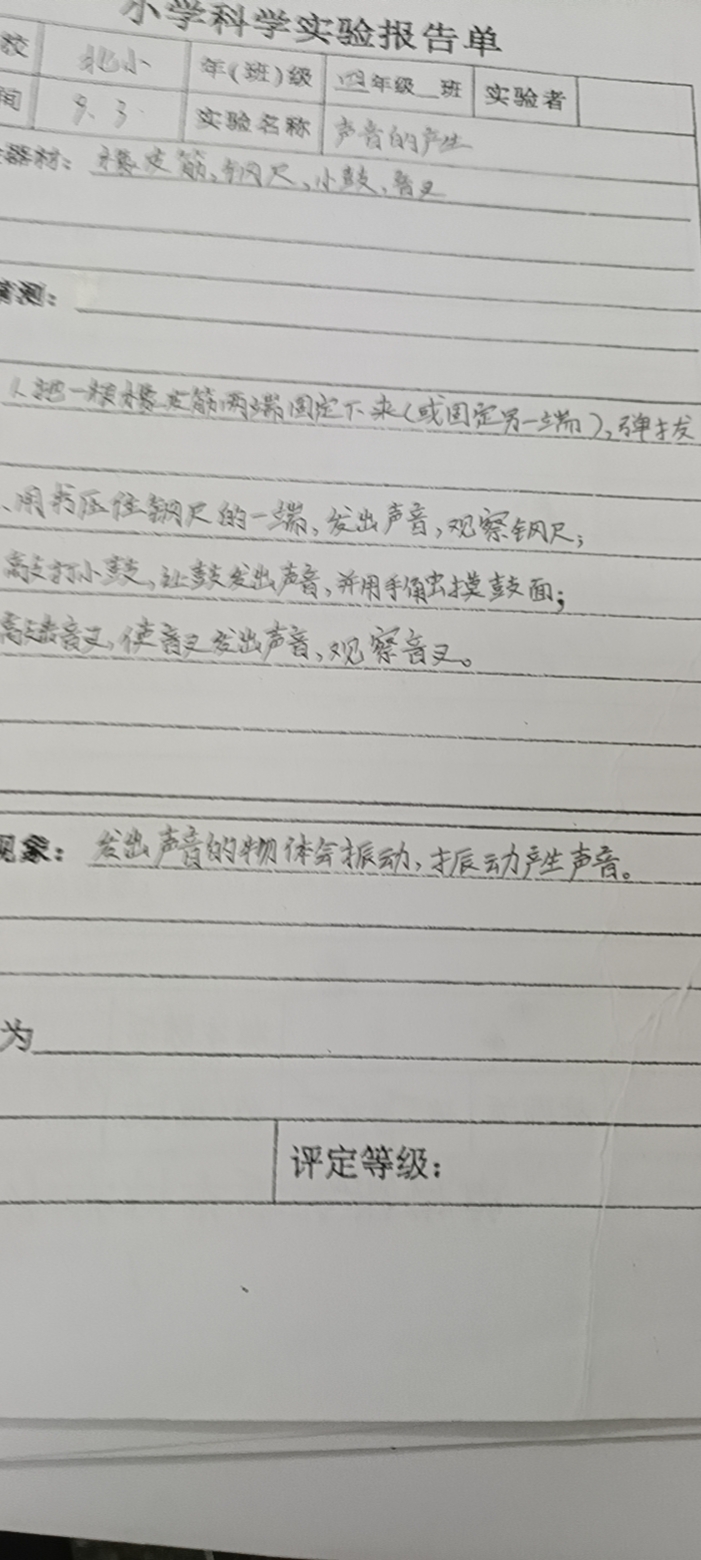 小学科学实验报告单
校 北小 年(班)级 四年级 班 实验者
间 9.3. 实验名称 声音的产生
器材: 橡皮筋、钢尺、小鼓、音叉
猜测:
1、把一根橡皮筋两端固定下来(或固定另一端),弹拨
、用书压住钢尺的一端,发出声音,观察钢尺;
敲打小鼓,让鼓发出声音,并用手触摸鼓面;
敲击音叉,使音叉发出声音,观察音叉。
现象: 发出声音的物体会振动,振动产生声音。
为
评定等级: